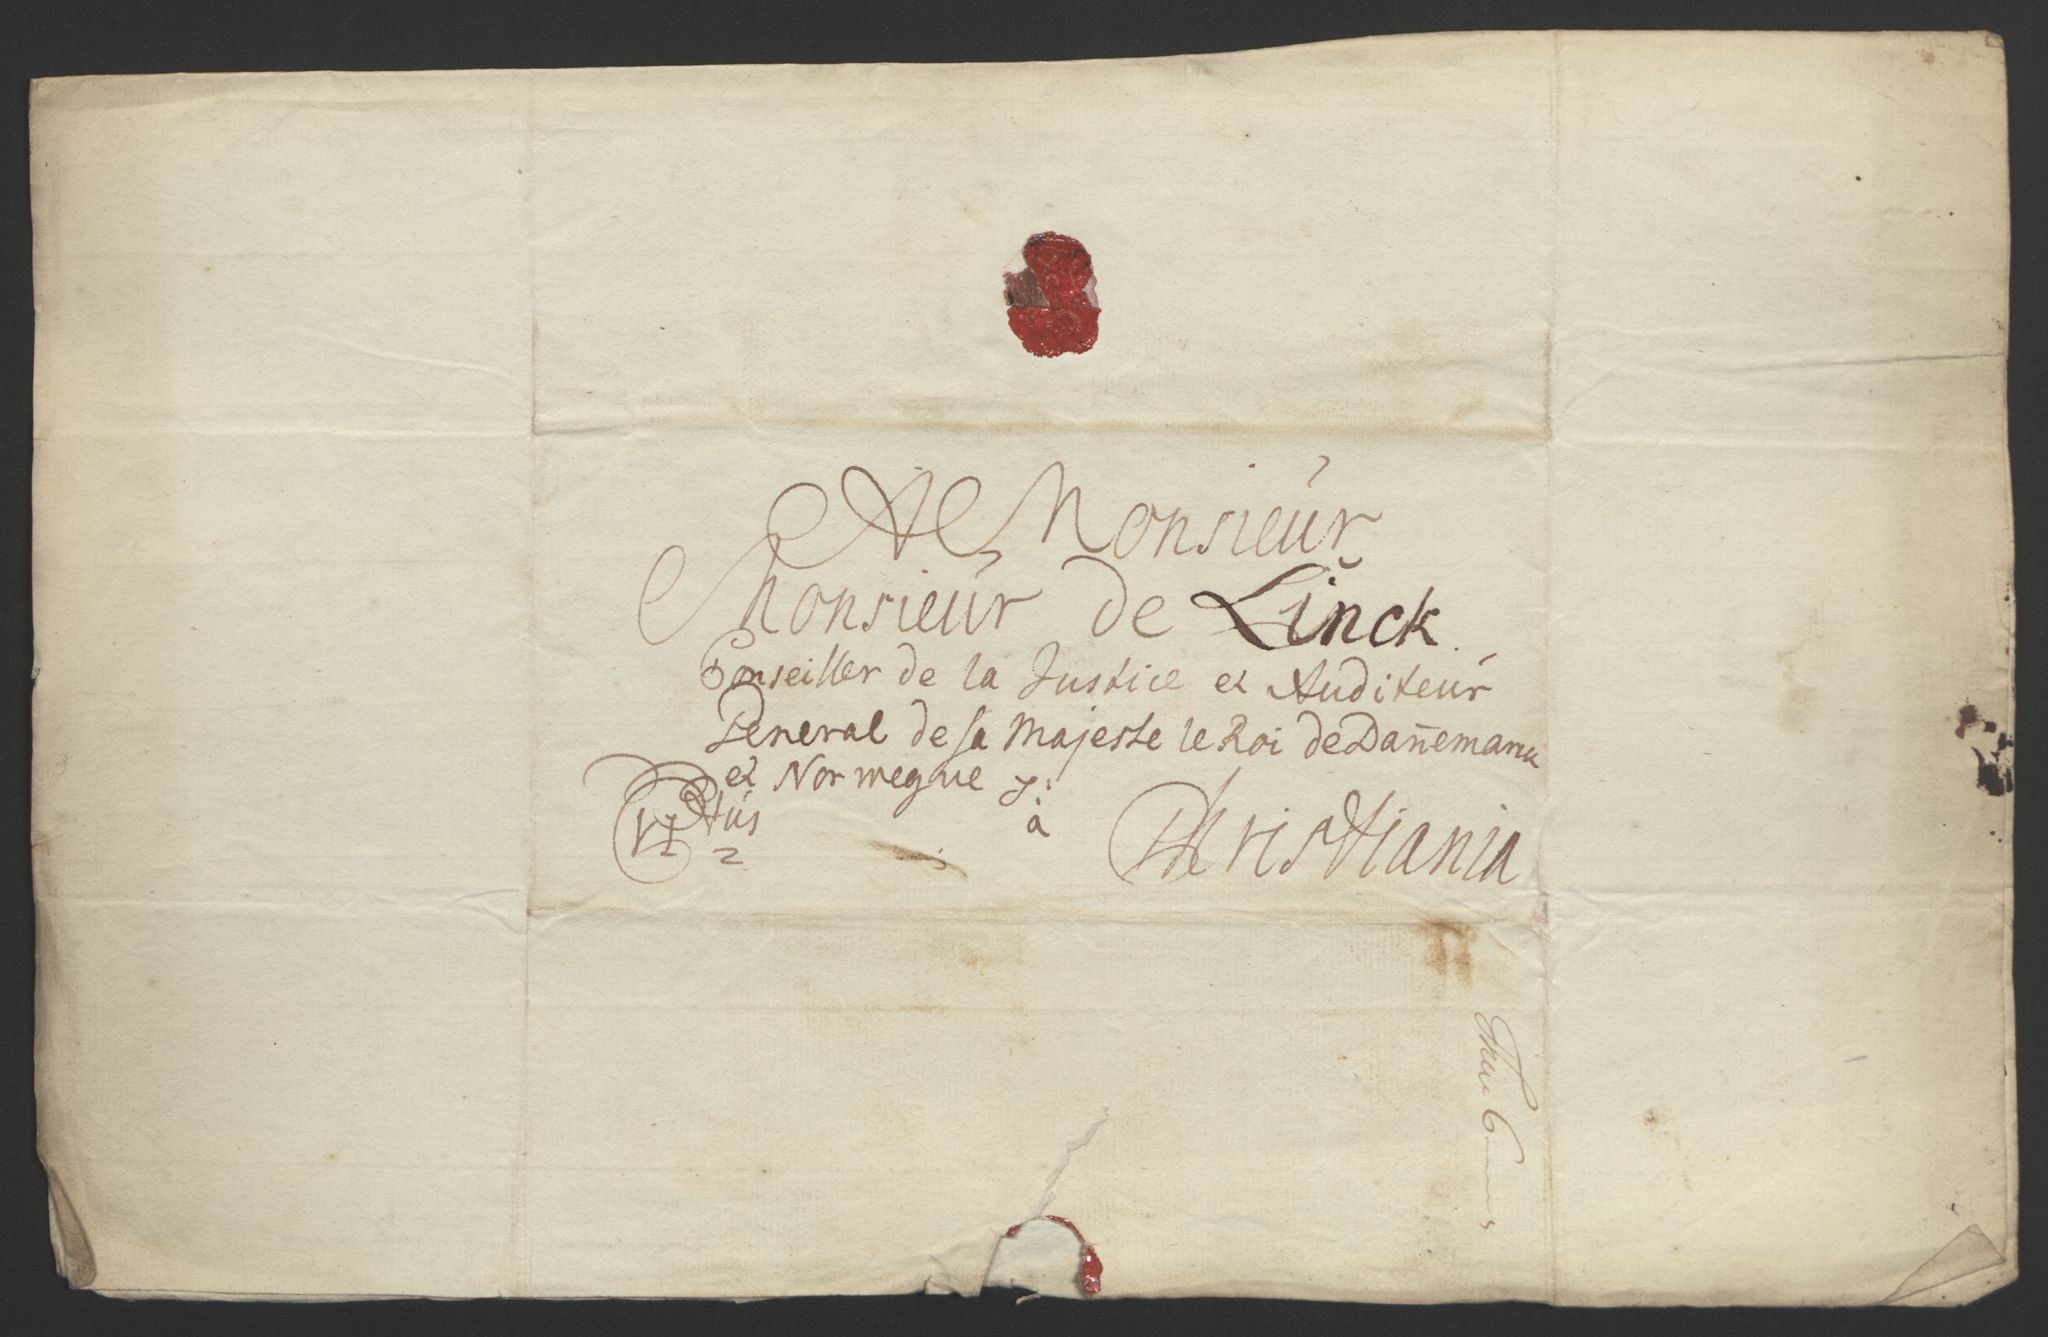 A Monsieur
Monsieur de Linck.
Conseiller de la Justice et Auditeur
General de sa Majeste le Roi de Dan̄emarck
et Norwegue
à Christiania